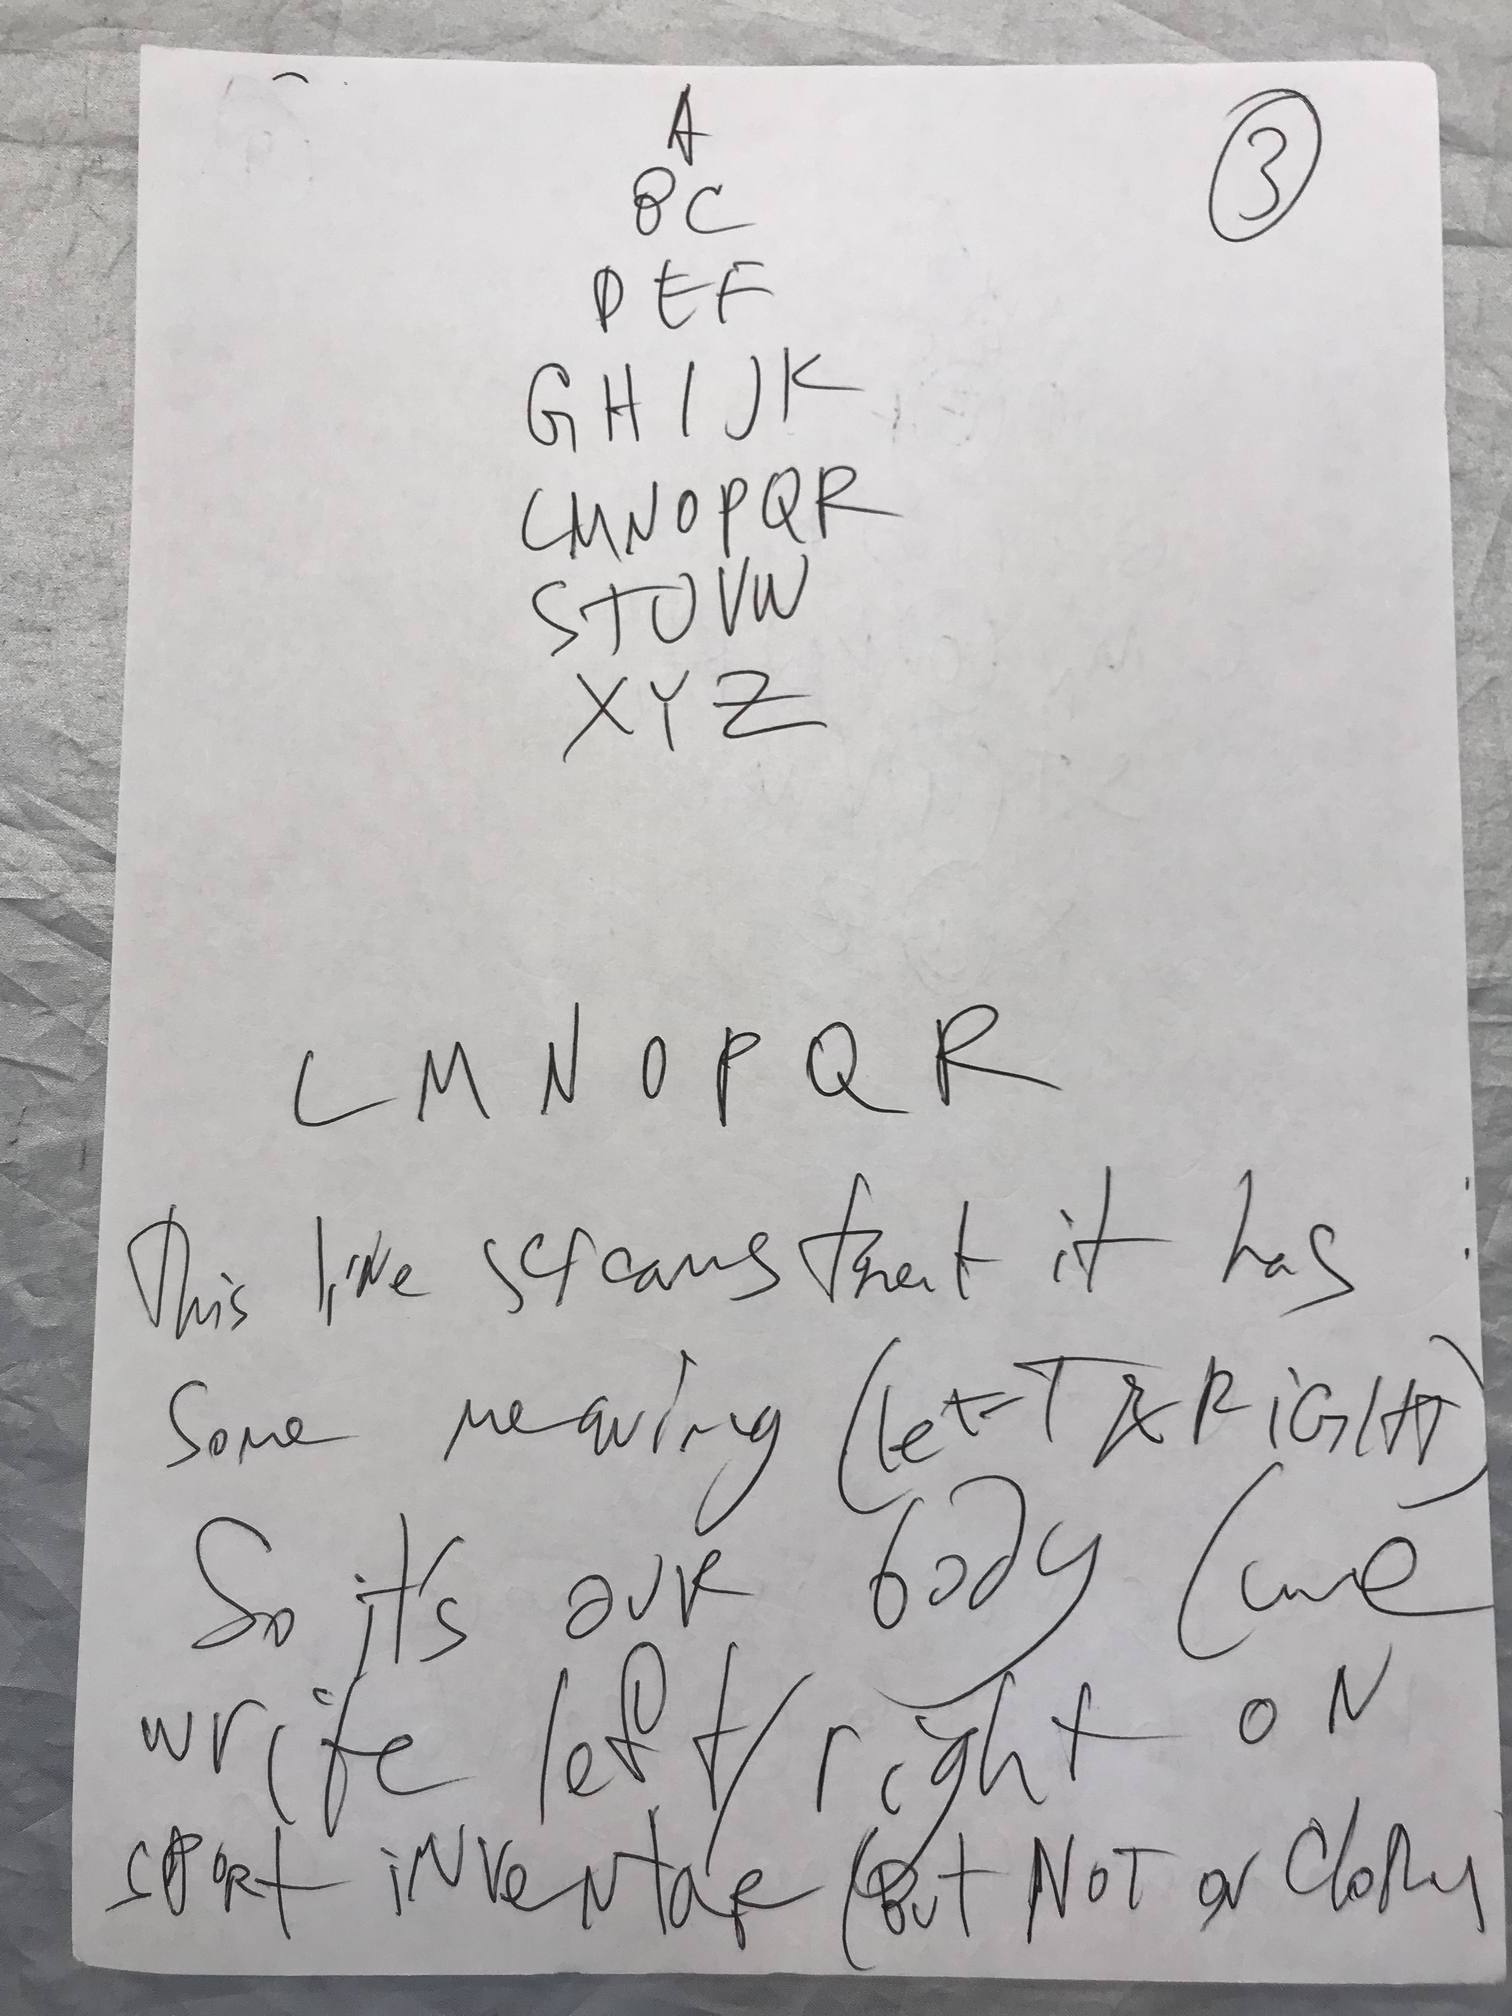 3
A
BC
DEF
GHIJK
LMNOPQR
STUVW
XYZ
L M N O P Q R
This line screams that it has :
some meaning (LEFT & RIGHT)
So it's our body (we
write left/right on
sport inventar (But NOT on